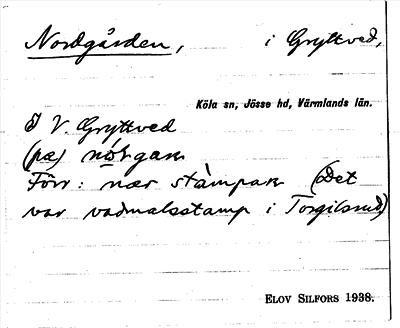 Nordgården, i Gryttved,
Köla sn, Jösse hd, Värmlands län.
I V. Gryttved
(pæ) nórgaɹn
Förr: nær stàmpaɹn (Det
var vadmalsstamp i Torgilsrud)
ELOV SILFORS 1938.